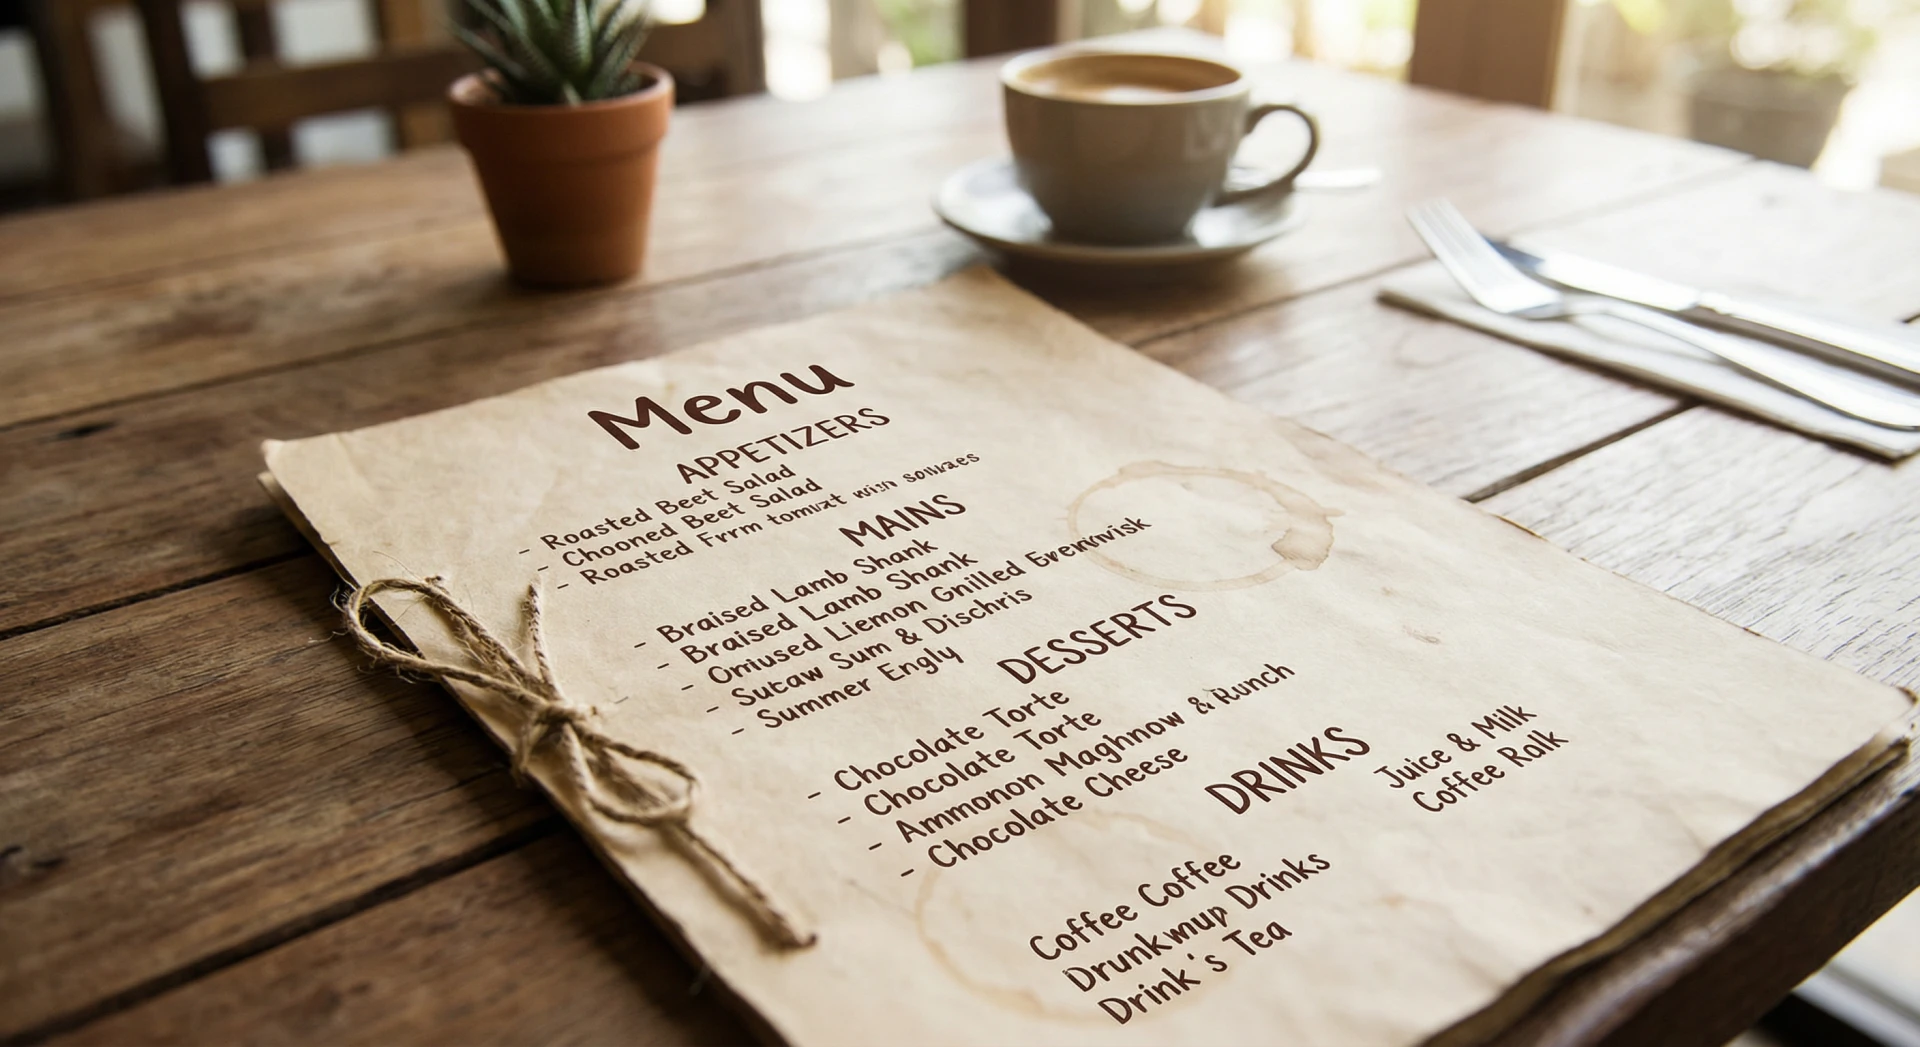 Menu
APPETIZERS
- Roasted Beet Salad
- Chooned Beet Salad
- Roasted Frrm with
MAINS
- Braised Lamb Shank
- Braised Lamb Shank
- Omiused Liemon Gnilled
- Sutaw Sum & Dischris
- Summer Engly
DESSERTS
- Chocolate Torte
- Chocolate Torte
- Ammonon Maghnow & Runch
- Chocolate Cheese
DRINKS
Juice & Milk
Coffee Ralk
Coffee Coffee
Drunkwup Drinks
Drink's Tea